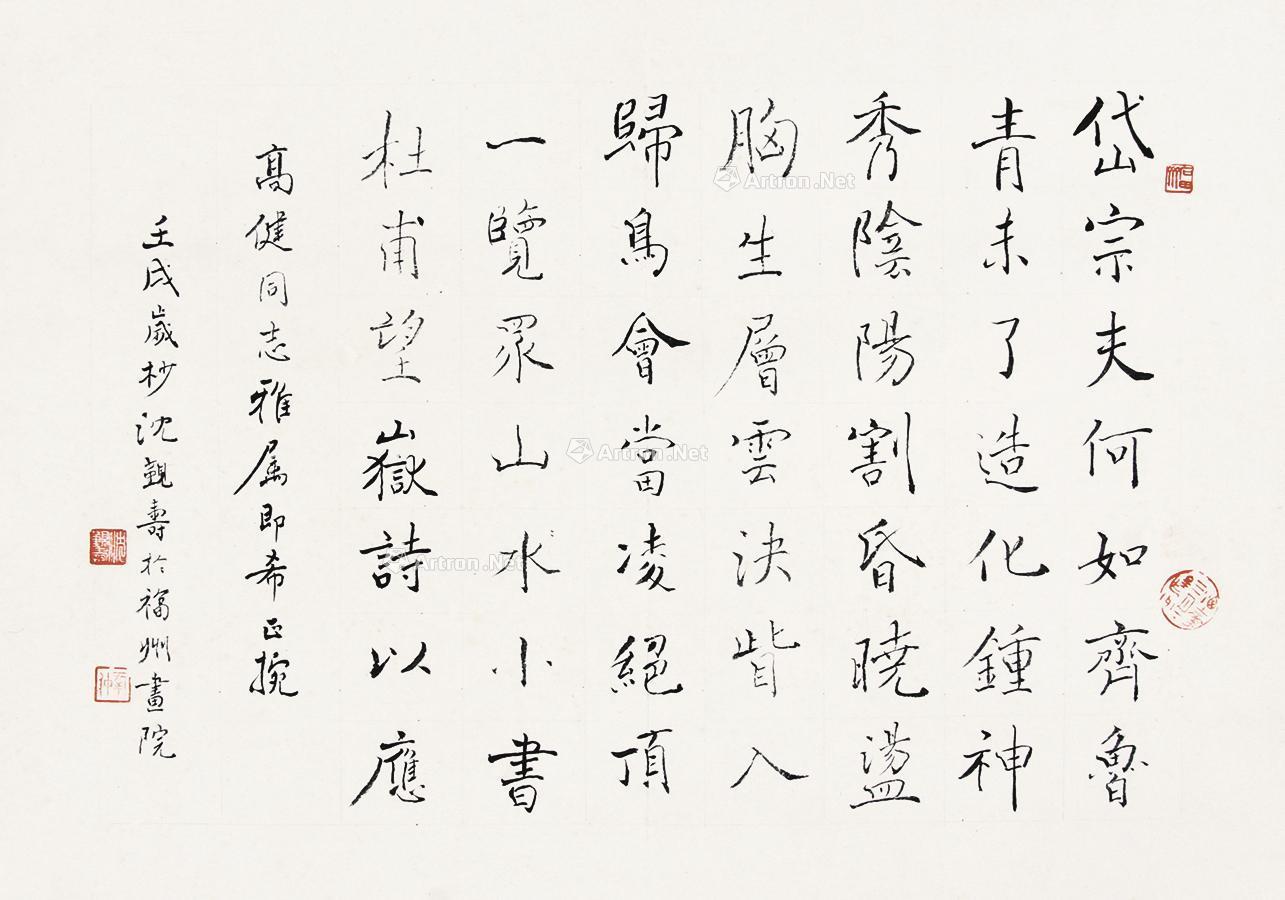 岱宗夫何如齊魯
青未了造化鍾神
秀陰陽割昏曉盪
胸生層雲決眥入
歸鳥會當凌絕頂
一覽眾山水小書
杜甫望嶽詩以應
高健同志雅屬即希正捥
壬戌歲杪沈覲壽於福州畫院
Artron.Net
Artron.Net
Artron.Net